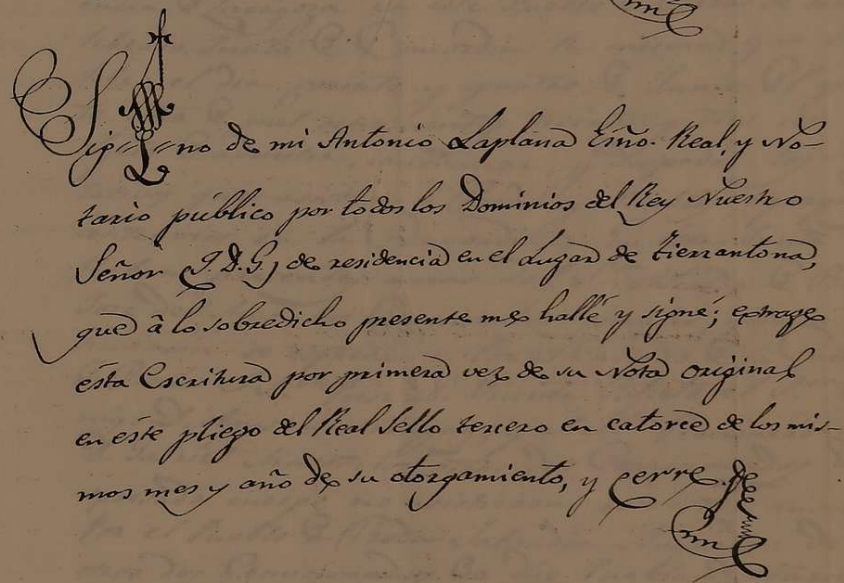 Sig=no de mi Antonio Laplana Esño. Real, y No-
tario público por todos los Dominios del Rey Nuestro
Señor (q. D. G.) de residencia en el Lugar de Tierrantona,
que â lo sobredicho presente me hallé y signé; extrage
ésta Escritura por primera vez de su Nota original
en éste pliego del Real Sello tercero en catorce de los mis-
mos mes y año de su otorgamiento, y cerré.